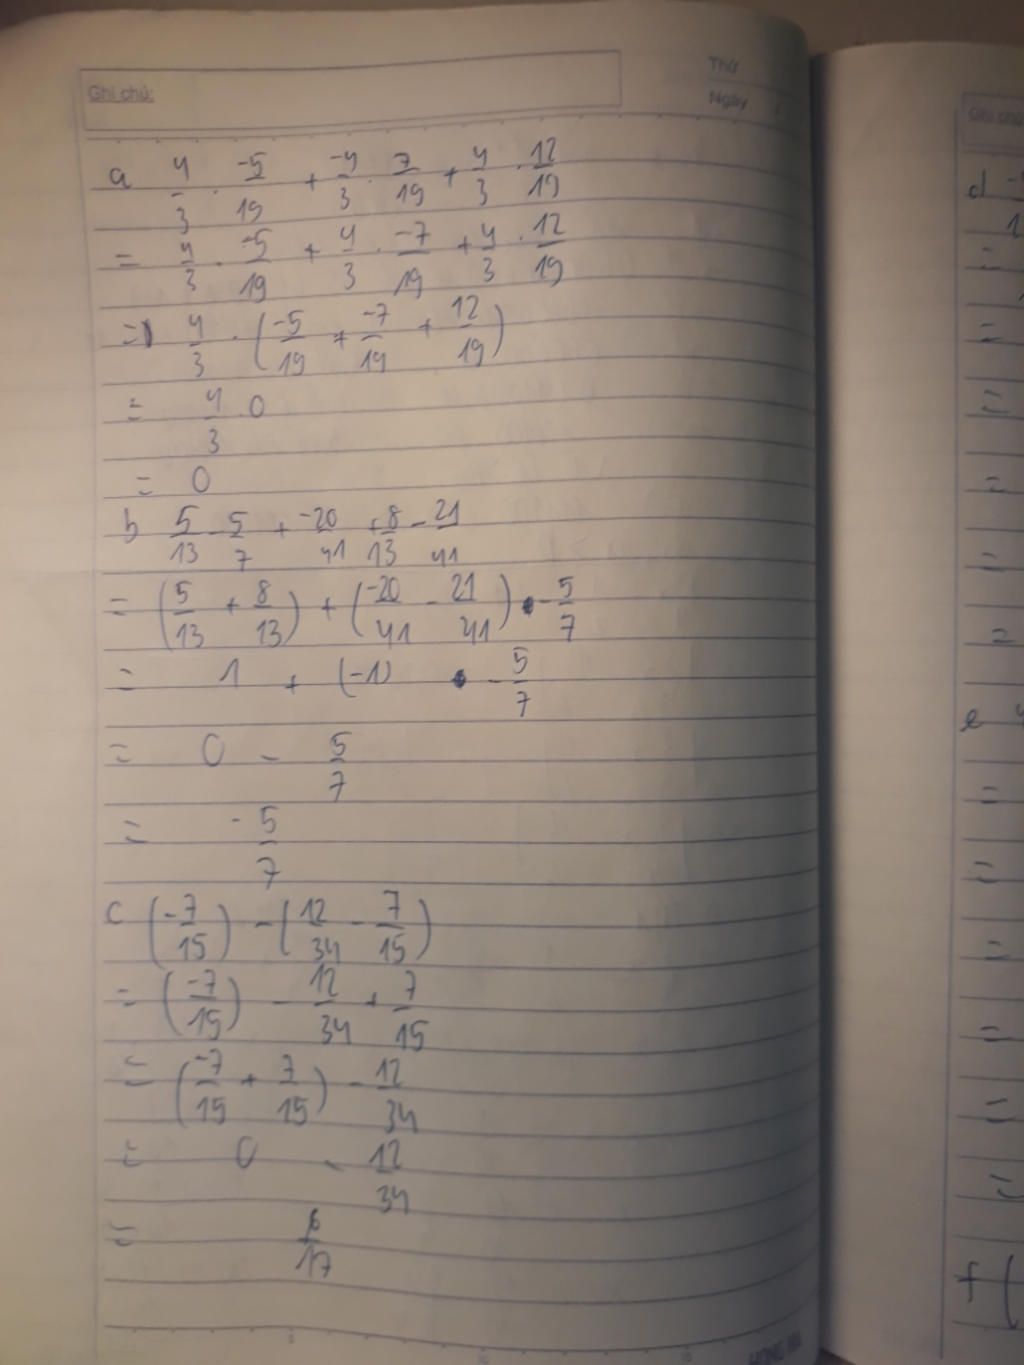 Ghi chú:
Thứ
Ngày
a 4/3 . -5/19 + -4/3 . 7/19 + 4/3 . 12/19
= 4/3 . -5/19 + 4/3 . -7/19 + 4/3 . 12/19
= 4/3 . (-5/19 + -7/19 + 12/19)
= 4/3 . 0
= 0
b 5/13 - 5/7 + -20/41 + 8/13 - 21/41
= (5/13 + 8/13) + (-20/41 - 21/41) - 5/7
= 1 + (-1) - 5/7
= 0 - 5/7
= -5/7
c (-7/15) - (12/34 - 7/15)
= (-7/15) - 12/34 + 7/15
= (-7/15 + 7/15) - 12/34
= 0 - 12/34
= 6/17
HONG HA
Ghi chú
d
=
=
=
=
=
=
e
=
=
=
=
=
=
f (